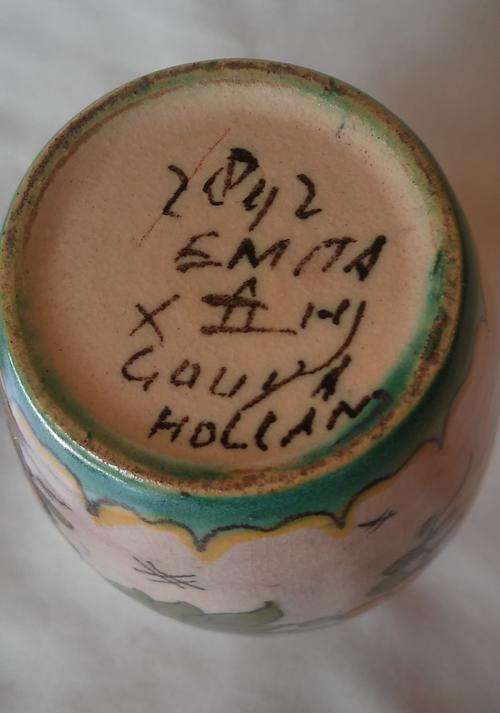 2842
EMMA
X HJ
GOUDA
HOLLAND